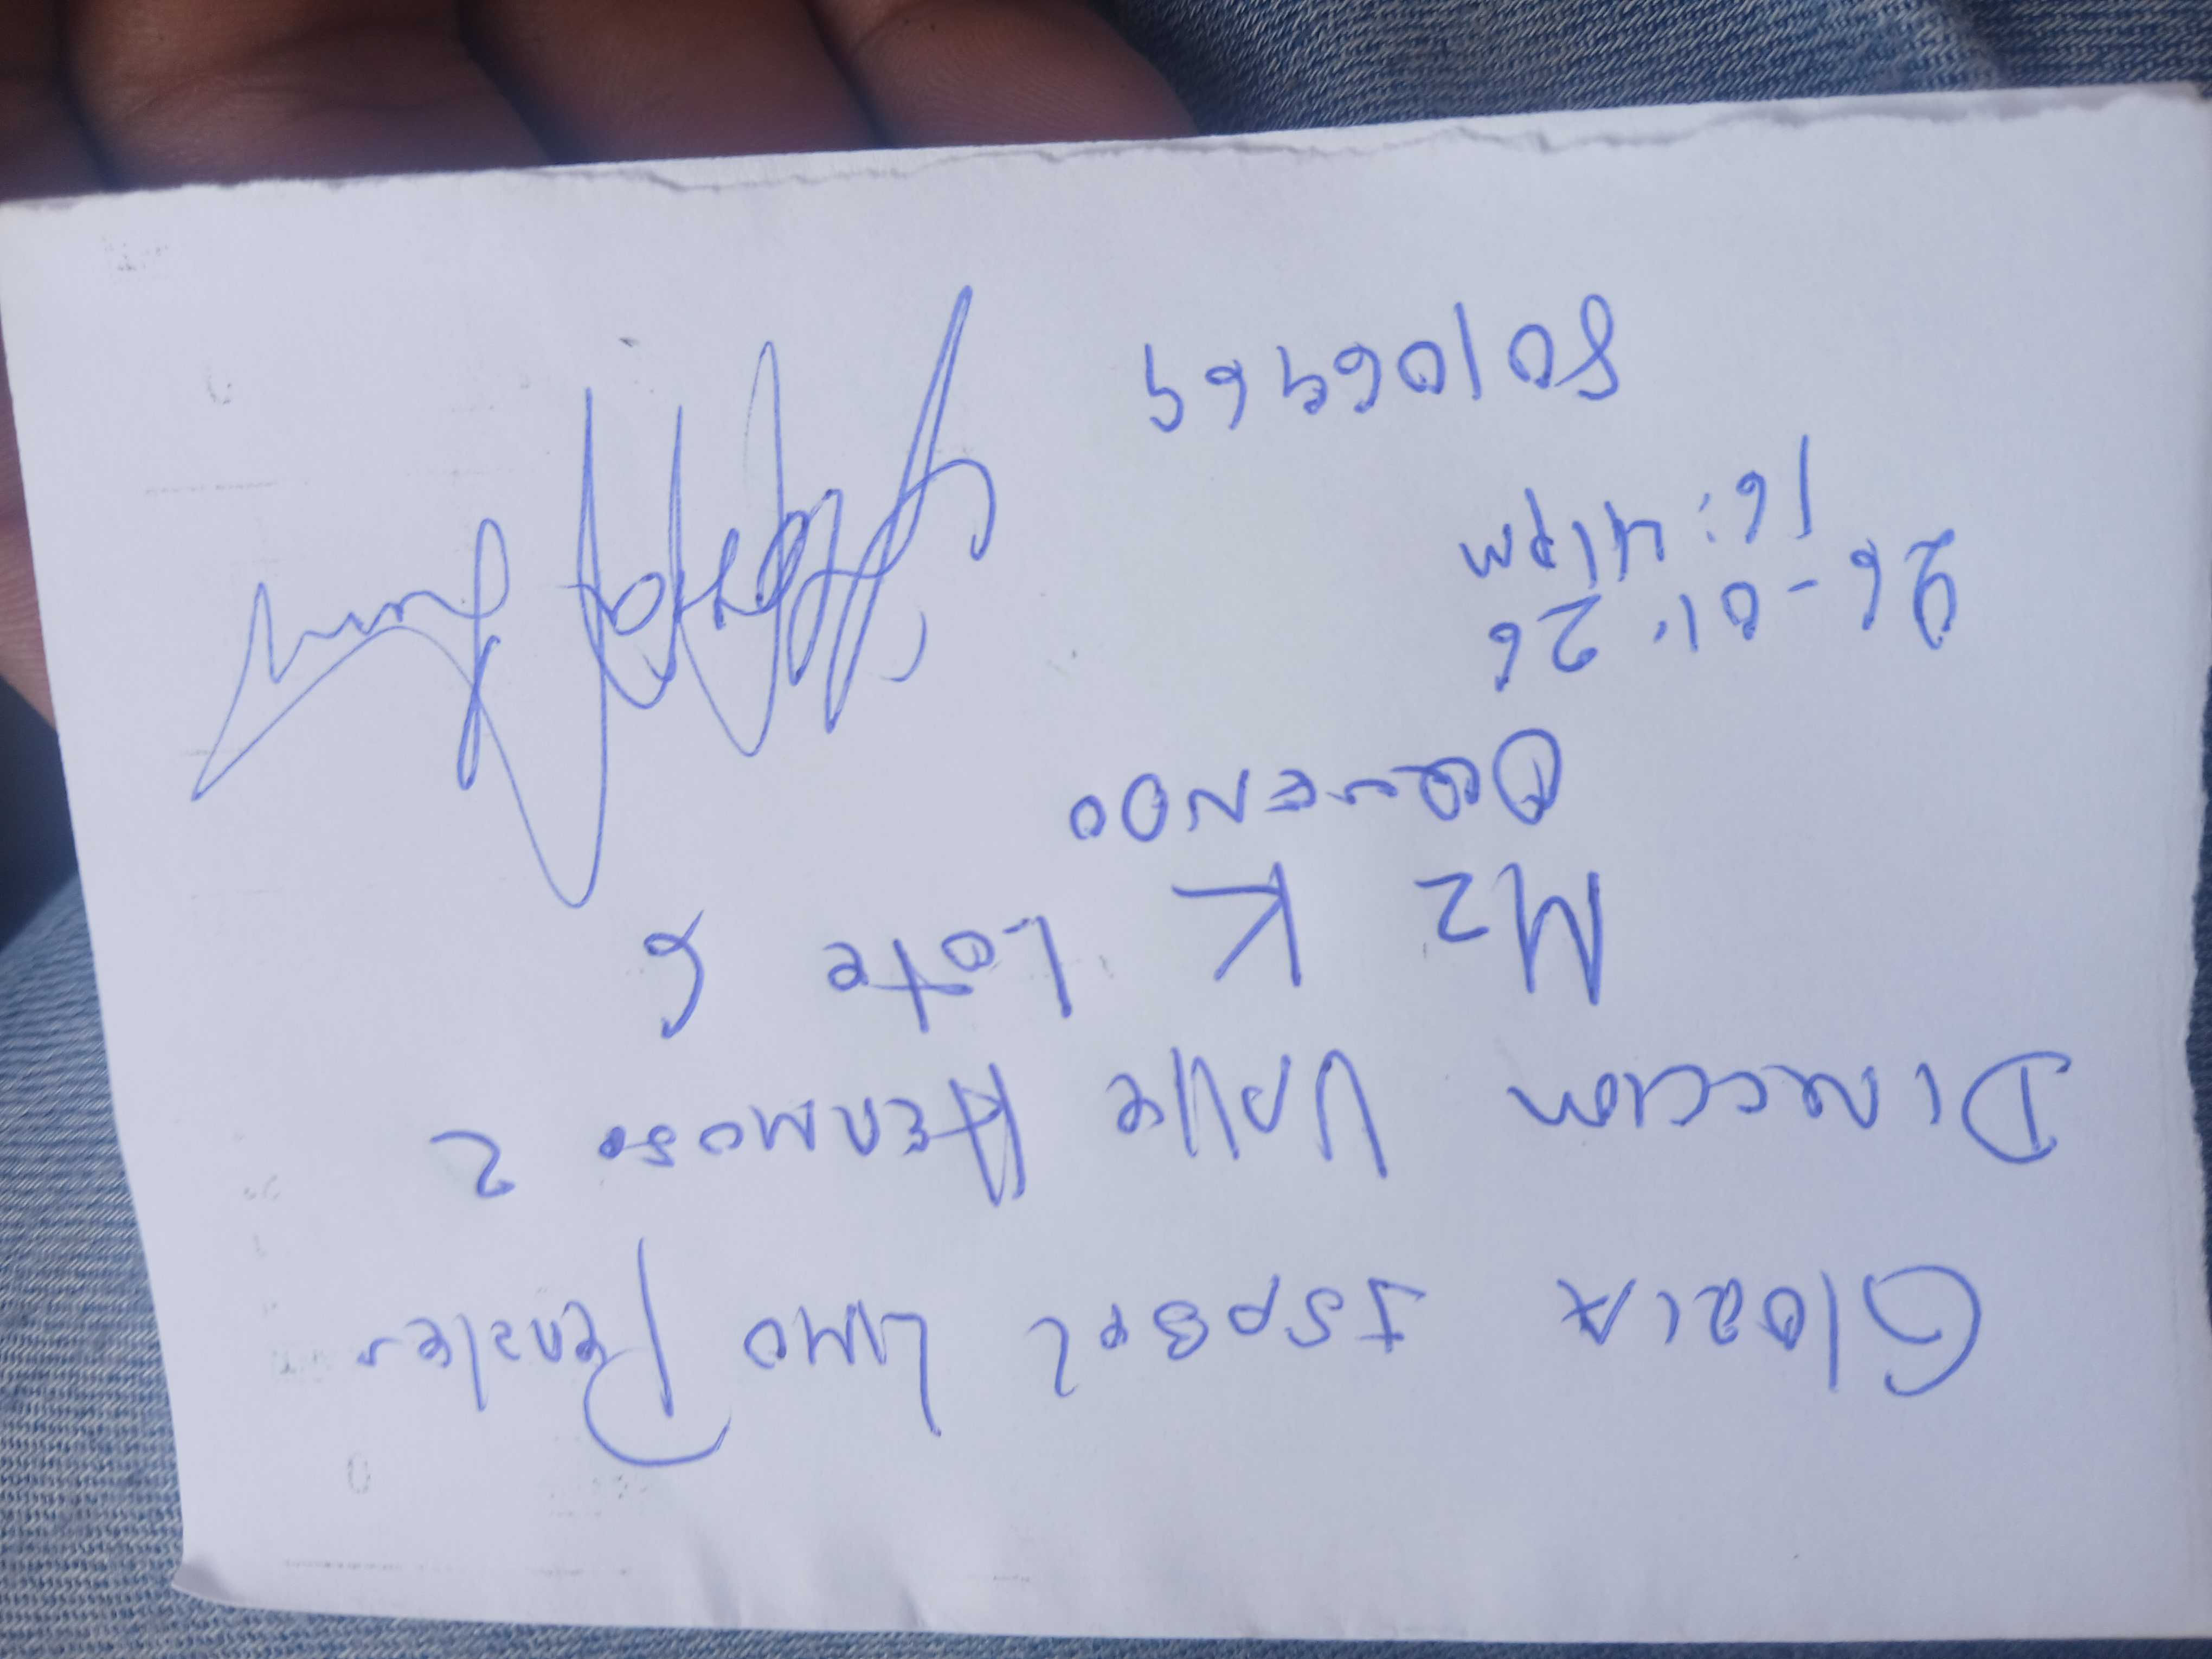 Gloria Isabel Limo
Direccion Valle Hermoso 2
Mz K Lote 6
26-01-26
16:41pm
80106464